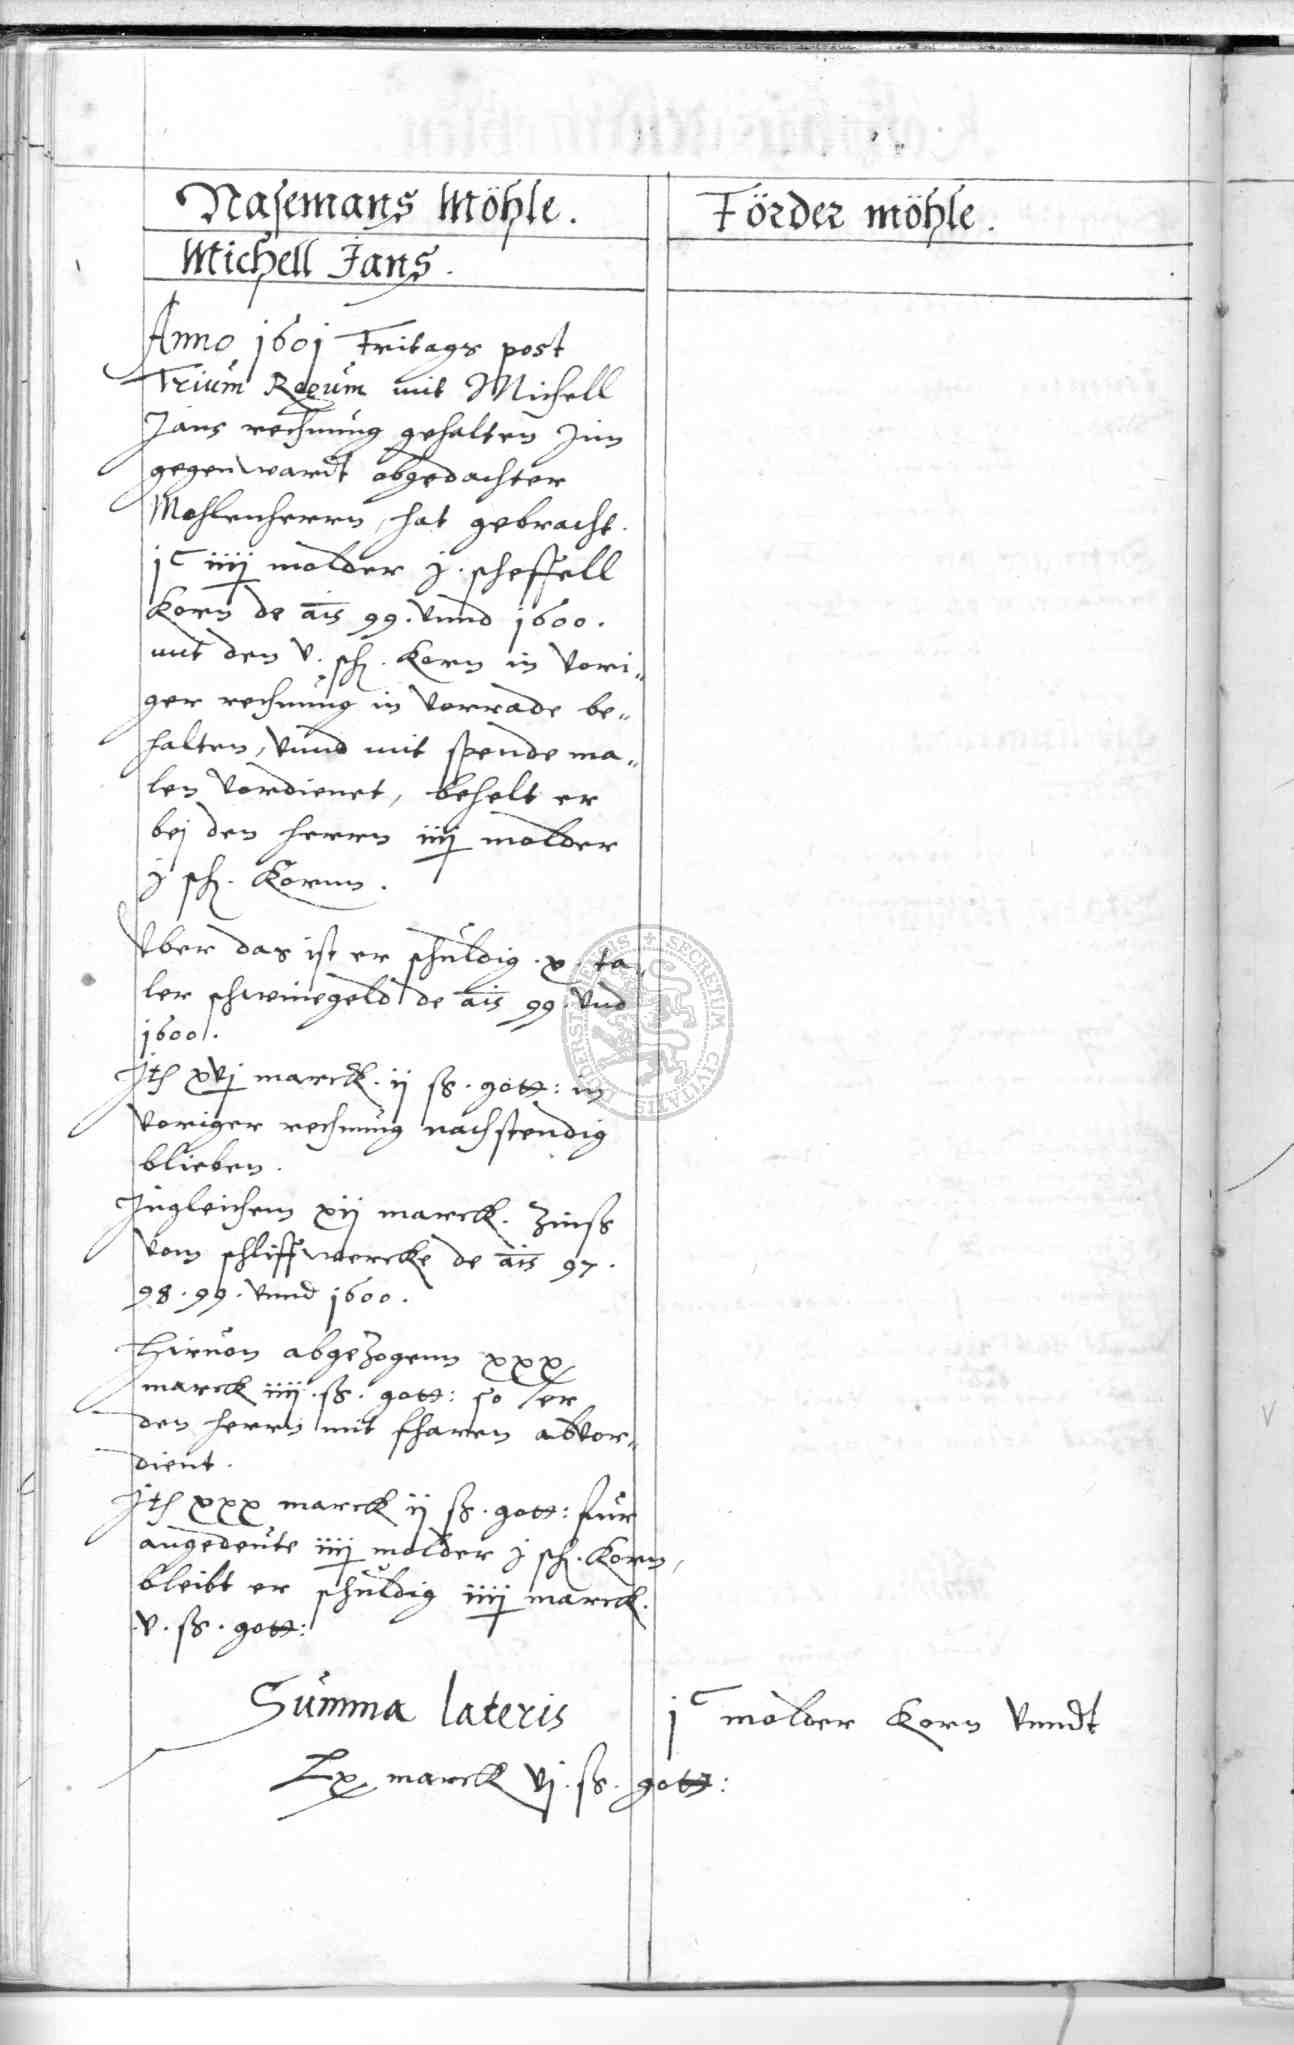 Nasemans Möhle.
Förder möhle.
Michell Jans.
Anno 1601 Fritags post
Trium Regum mit Michell
Jans rechnung gehalten Jnn
gegenwardt obgedachter
Mohlenherrn, hat gebracht.
jc iiij molder j. scheffell
Korn de ais 99. vnnd 1600.
mit den v. sch. Korn in vori„
ger rechnung in vorrade be„
halten, vnnd mit spende ma„
len vordienet, behelt er
bej den herrn iiij molder
j sch. Kornn.
Vber das ist er schuldig .x. ta„
ler schweinegeld de ais 99. vnd
1600.
Jtem xvj marck. ij ß. gott: in
voriger rechnung nachstendig
blieben.
Jngleichem xij marck. Zinß
vom schliffwercke de ais 97.
98. 99. vnnd 1600.
Hiruon abgezogenn xxx
marck iiij. ß. gott: so er
den herrn mit fharen abvor„
dient.
Jtem xxx marck ij ß. gott: fuer
angedeute iiij molder j sch. Korn,
bleibt er schuldig iiij marck.
v. ß. gott:
Summa lateris jc molder Korn vnndt
Lx marck vj. ß. gott:
SECRETUM CIVITATIS